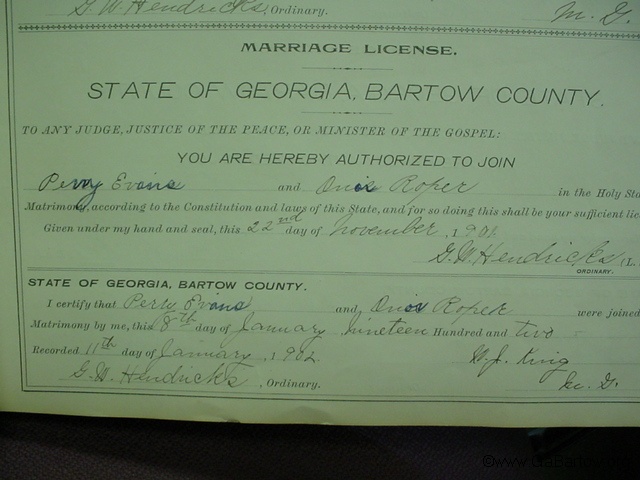 G. W. Hendricks, Ordinary. M. G.
MARRIAGE LICENSE.
STATE OF GEORGIA, BARTOW COUNTY.
TO ANY JUDGE, JUSTICE OF THE PEACE, OR MINISTER OF THE GOSPEL:
YOU ARE HEREBY AUTHORIZED TO JOIN
Perry Evans and Roper in the Holy Sta
Matrimony, according to the Constitution and laws of this State, and for so doing this shall be your sufficient lice
Given under my hand and seal, this 22nd day of November, 1901
G. W. Hendricks (L.
ORDINARY.
STATE OF GEORGIA, BARTOW COUNTY.
I certify that Perry Evans and Roper were joined
Matrimony by me, this 8th day of January nineteen Hundred and two
Recorded 11th day of January, 1902 W. J. King
G. W. Hendricks, Ordinary. M. G.